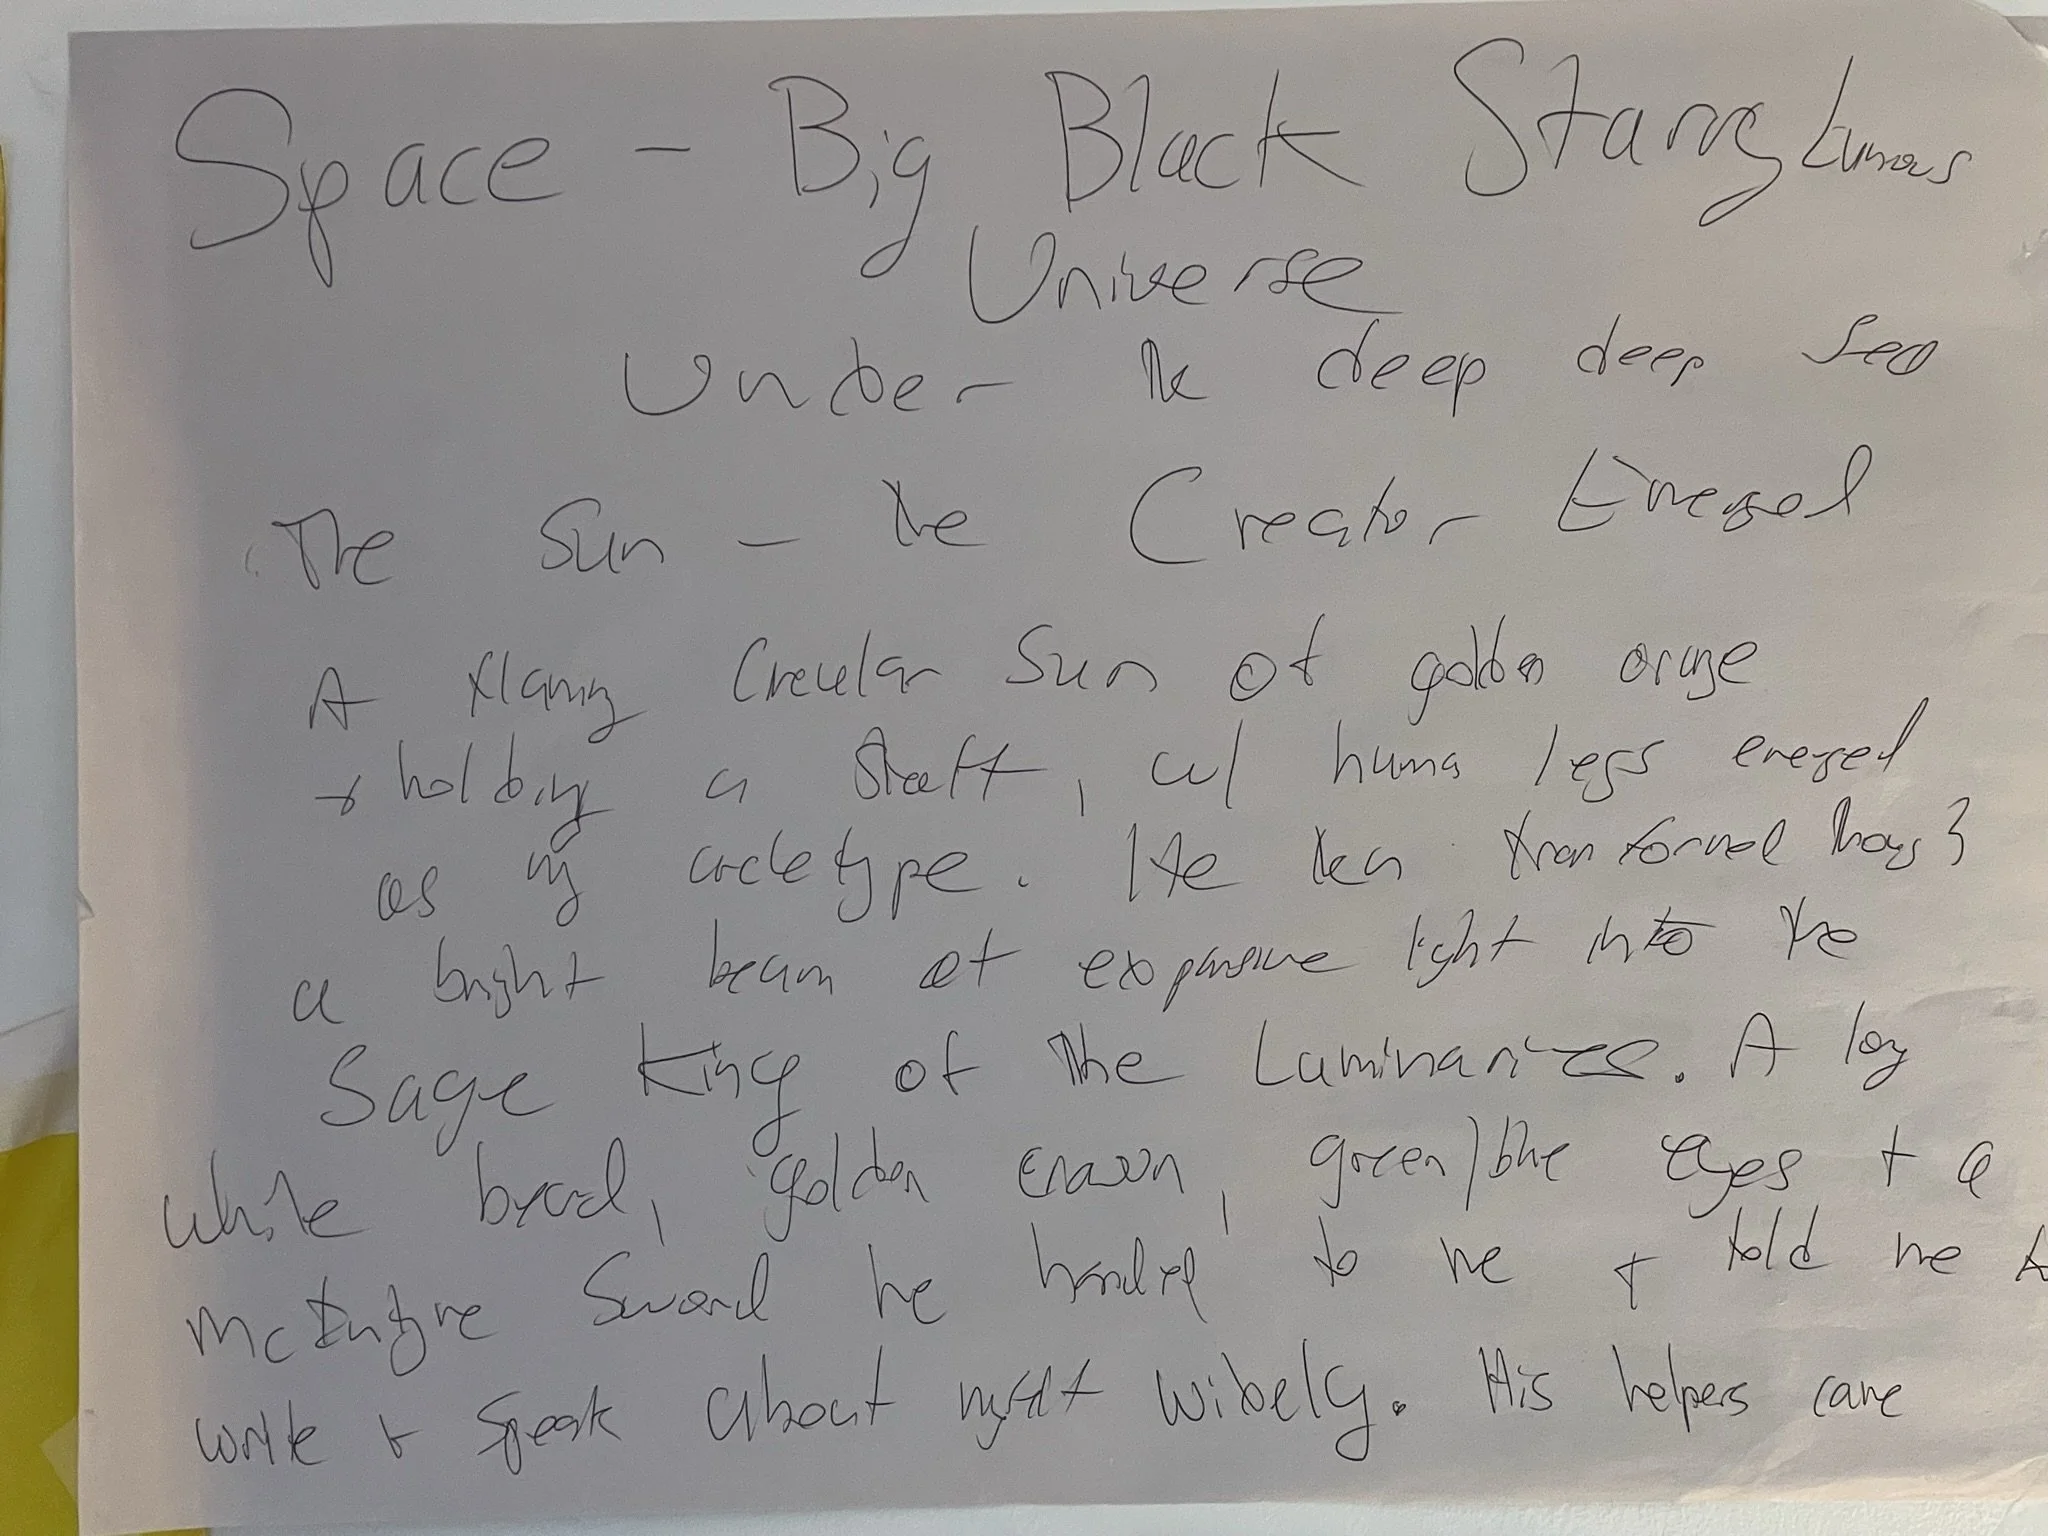 Space - Big Black Starry
Universe
Under the deep deep sea
The Sun - the Creator Emerged
A flaming Circular Sun of golden orange
+ holding a staff, w/ human legs emerged
as my archetype. He then transformed through
a bright beam of expansive light into the
Sage King of The Luminaries. A long
white beard, golden crown, green/blue eyes + a
McIntyre Sword he handed to me + told me to
write + speak about widely. His helpers came